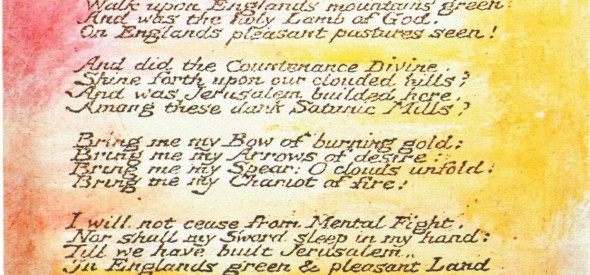 Walk upon Englands mountains green:
And was the holy Lamb of God.
On Englands pleasant pastures seen!
And did the Countenance Divine.
Shine forth upon our clouded hills?
And was Jerusalem builded here.
Among these dark Satanic Mills?
Bring me my Bow of burning gold:
Bring me my Arrows of desire:
Bring me my Spear: O clouds unfold!
Bring me my Chariot of fire!
I will not cease from Mental Fight,
Nor shall my Sword sleep in my hand:
Till we have built Jerusalem,
In Englands green & pleasant Land